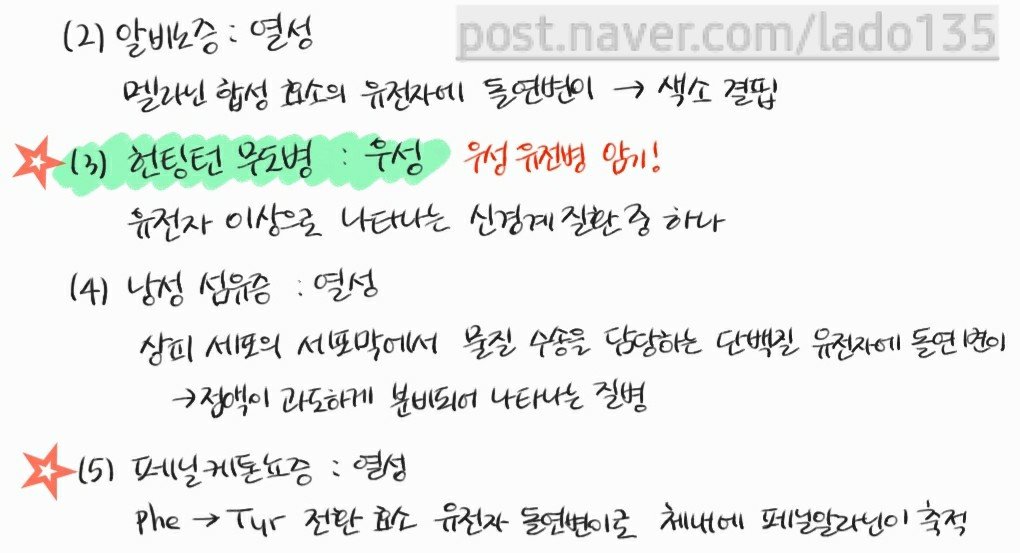 post.naver.com/lado135
(2) 알비노증 : 열성
멜라닌 합성 효소의 유전자에 돌연변이 → 색소 결핍
(3) 헌팅턴 무도병 : 우성 우성 유전병 암기!
유전자 이상으로 나타나는 신경계 질환 중 하나
(4) 낭성 섬유증 : 열성
상피 세포의 세포막에서 물질 수송을 담당하는 단백질 유전자에 돌연변이
→ 점액이 과도하게 분비되어 나타나는 질병
(5) 페닐케톤뇨증 : 열성
Phe → Tyr 전환 효소 유전자 돌연변이로 체내에 페닐알라닌이 축적